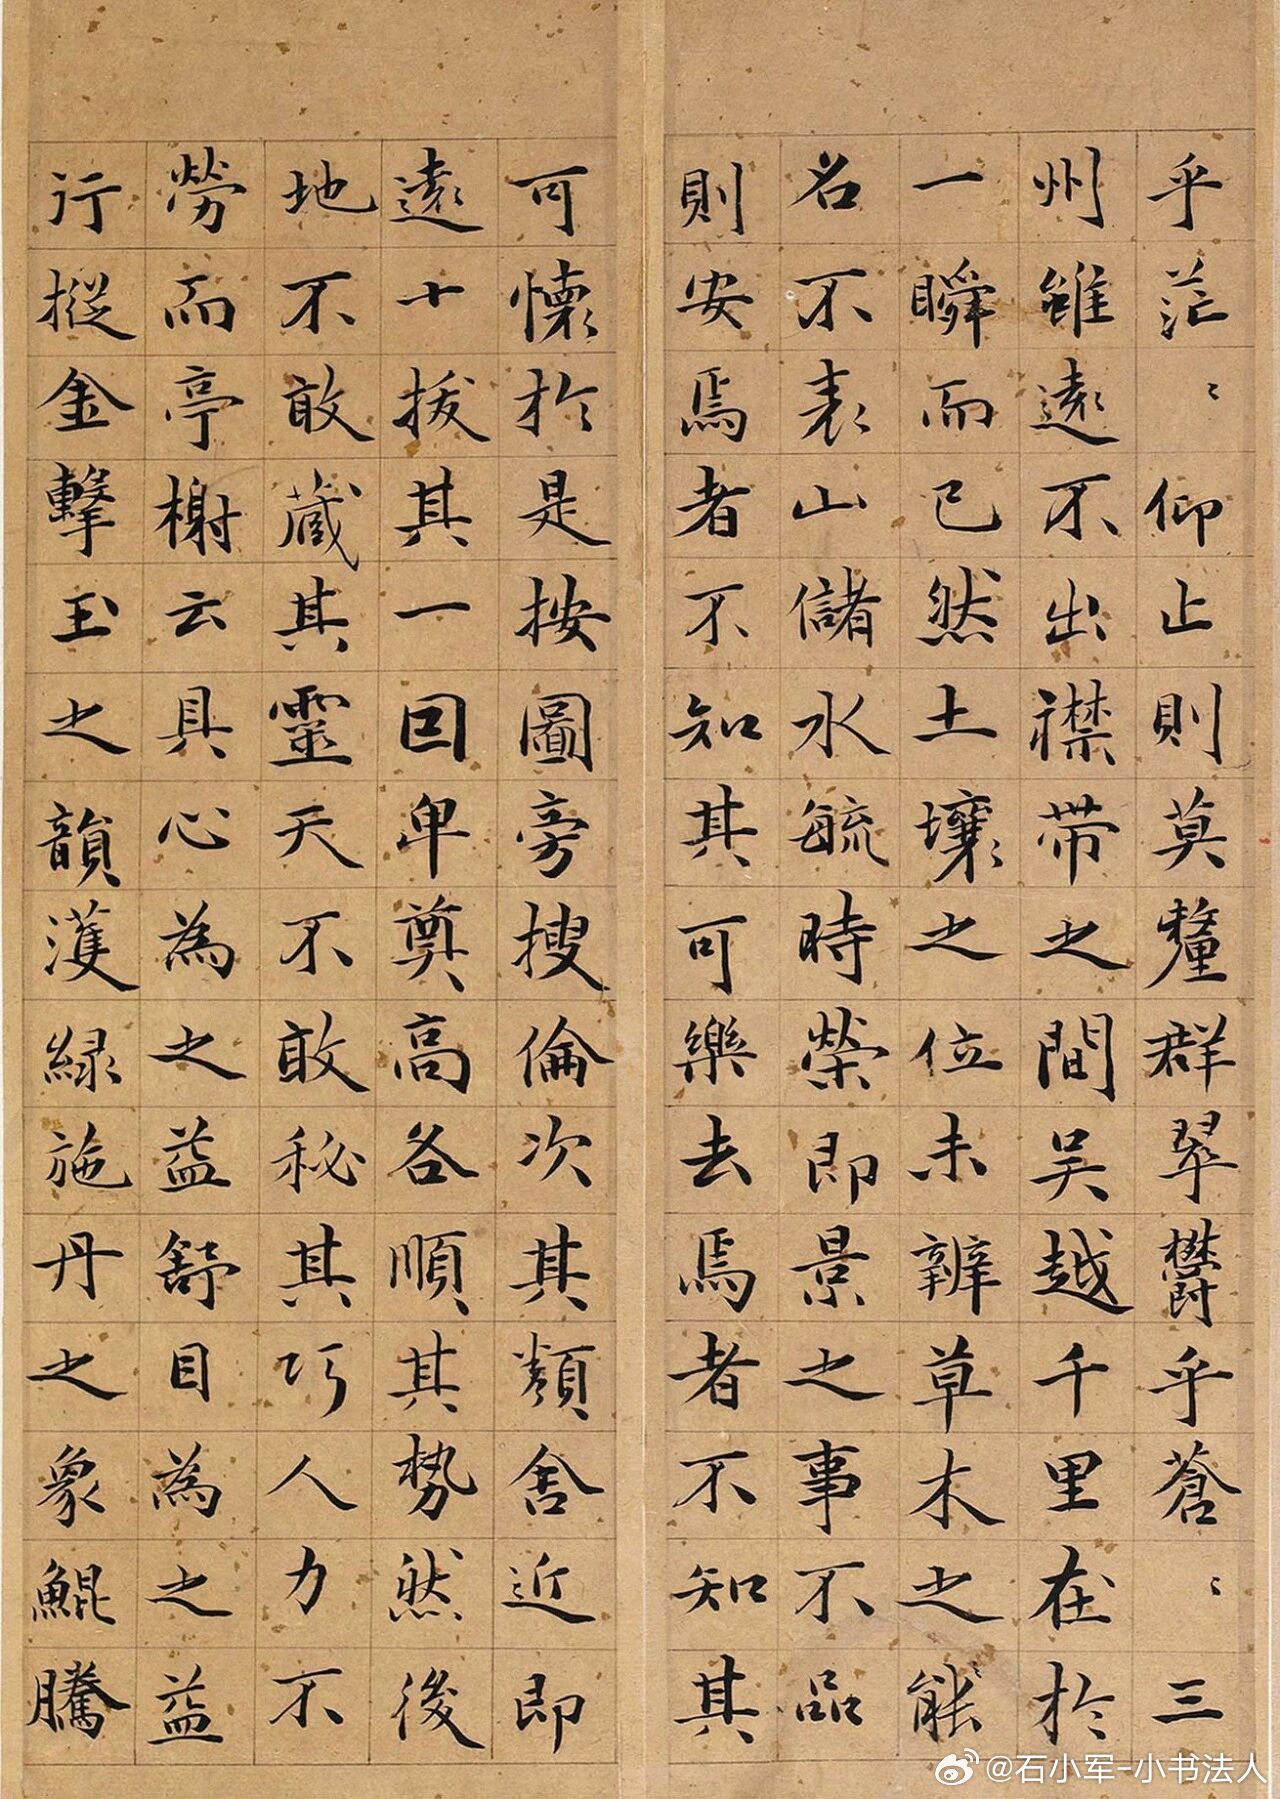 乎茫〻仰止則莫釐群翠欝乎蒼〻三
州雖遠不出襟帶之間吴越千里在於
一瞬而已然土壤之位未辨草木之能
名不表山儲水毓時榮即景之事不品
則安焉者不知其可樂去焉者不知其
可懷於是按圖旁搜倫次其類舍近即
遠十拔其一因卑奠高各順其勢然後
地不敢藏其靈天不敢秘其巧人力不
勞而亭榭云具心為之益舒目為之益
行摐金擊玉之韻濩緑施丹之象鯤騰
@石小军-小书法人